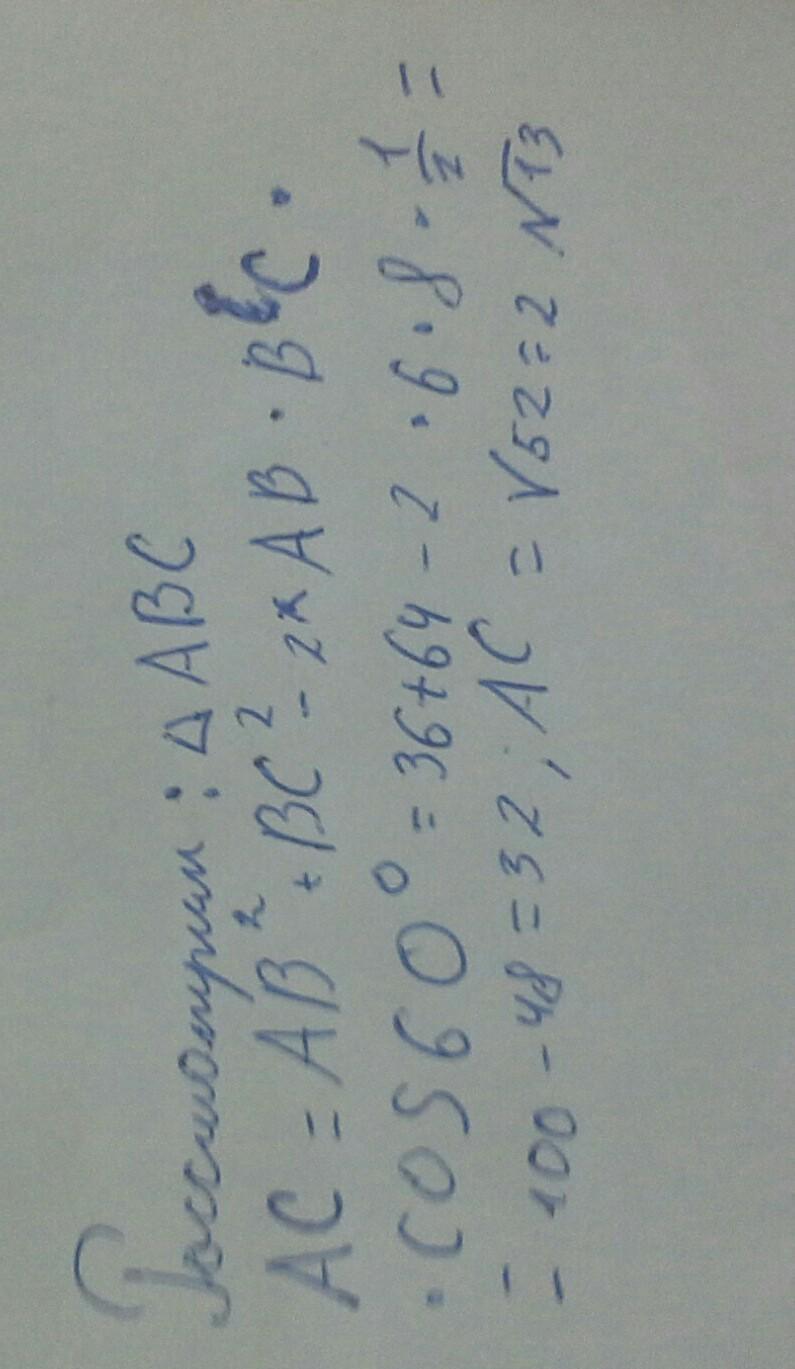 Рассмотрим : Δ ABC
AC = AB² + BC² - 2 * AB · BC ·
· COS 60° = 36+64 - 2 · 6 · 8 · 1/2 =
= 100 - 48 = 32 ; AC = √52 = 2 √13